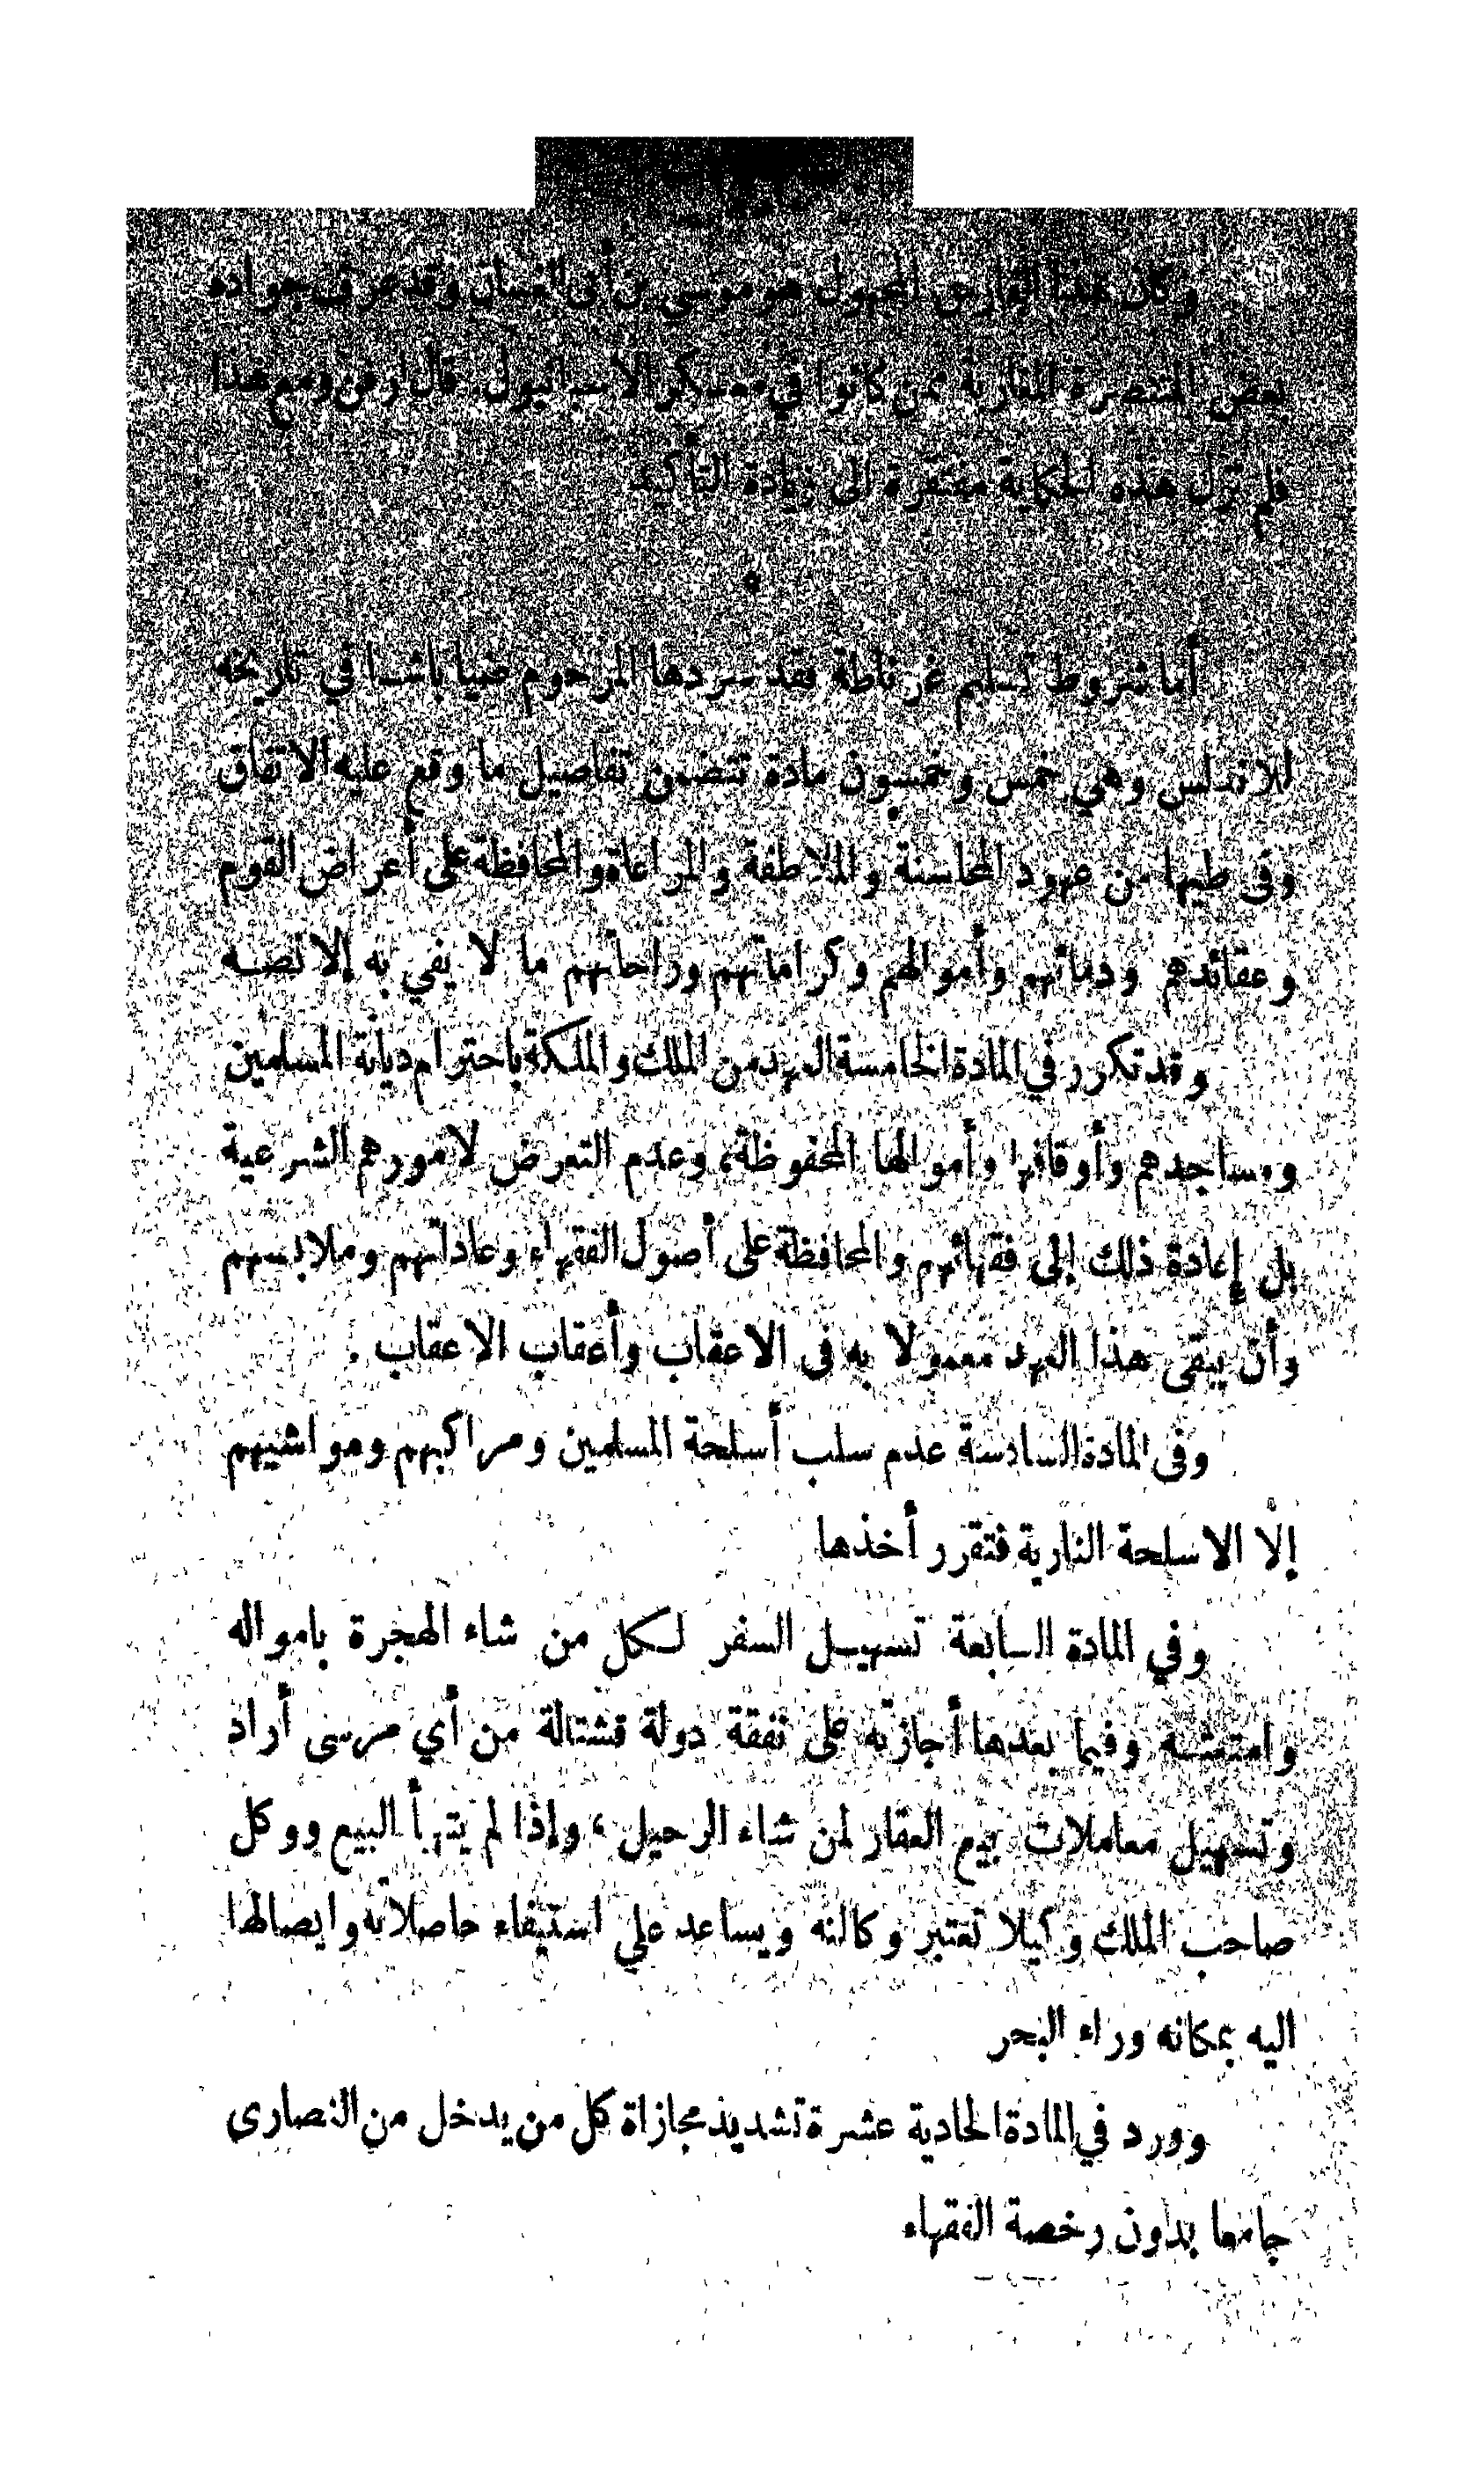 وكان هذا الفارس المجهول هو موسى بن أبى الغسان وقد عرف جواده
بعض المتنصرة المغاربة ممن كانوا في معسكر الاسبانيول. قال ارفن ومع هذا
فلم تزل هذه الحكاية مفتقرة الى زيادة التأكيد
أما شروط تسليم غرناطة فقد سردها المرحوم ضيا باشا في تاريخه
للاندلس وهي خمس وخمسون مادة تتضمن تفاصيل ما وقع عليه الاتفاق
وفى طيها من عهود المحاسنة والملاطفة والمراعاة والمحافظة على أعراض القوم
وعقائدهم ودمائهم وأموالهم وكراماتهم وراحاتهم ما لا يفي به إلا نصه
وقد تكرر في المادة الخامسة العهد من الملك والملكة باحترام ديانة المسلمين
ومساجدهم وأوقافها وأموالها المحفوظة، وعدم التعرض لامورهم الشرعية
بل إعادة ذلك إلى فقهائهم والمحافظة على أصول الفقهاء وعاداتهم وملابسهم
وأن يبقى هذا العهد معمولا به فى الاعقاب وأعقاب الاعقاب .
وفى المادة السادسة عدم سلب أسلحة المسلمين ومراكبهم ومواشيهم
إلا الاسلحة النارية فتقرر أخذها
وفي المادة السابعة تسهيل السفر لكل من شاء الهجرة بامواله
وامتعته وفيما بعدها أجازته على نفقة دولة قشتالة من أي مرسى أراد
وتسهيل معاملات بيع العقار لمن شاء الرحيل ، وإذا لم يتهيأ البيع ووكل
صاحب الملك وكيلا تعتبر وكالته ويساعد على استيفاء حاصلاته وايصالها
اليه بمكانه وراء البحر
وورد في المادة الحادية عشرة تشديد مجازاة كل من يدخل من النصارى
جامعا بدون رخصة الفقهاء